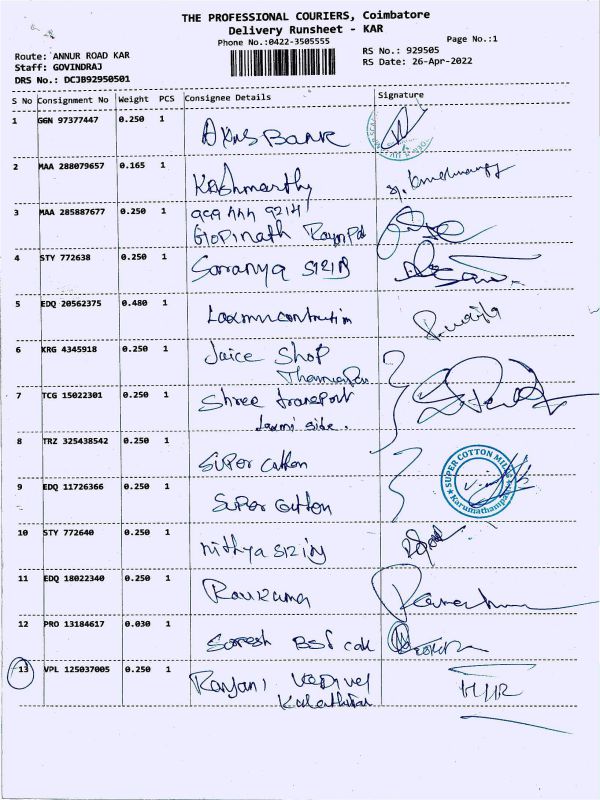 THE PROFESSIONAL COURIERS, Coimbatore
Delivery Runsheet - KAR
Phone No.:0422-3505555
Page No.:1
Route: ANNUR ROAD KAR
RS No.: 929505
Staff: GOVINDRAJ
RS Date: 26-Apr-2022
DRS No.: DCJB92950501
S No Consignment No Weight PCS Consignee Details Signature
1 GGN 97377447 0.250 1 BANK
2 MAA 288079657 0.165 1
3 MAA 285887677 0.250 1
Gopinath
4 STY 772638 0.250 1 Saranya SIZIN
5 EDQ 20562375 0.480 1
6 KRG 4345918 0.250 1 Juice Shop
7 TCG 15022301 0.250 1 Shree transport
laxmi side.
8 TRZ 325438542 0.250 1 Super Cotton
SUPER COTTON MILL
Karumathampatti
9 EDQ 11726366 0.250 1 Super Cotton
10 STY 772640 0.250 1 nithya SIZIN
11 EDQ 18022340 0.250 1 Ravikumar
12 PRO 13184617 0.030 1 Suresh
13 VPL 125037005 0.250 1 Ranjani